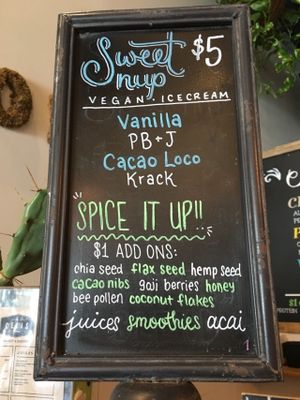 Sweet $5
nup
VEGAN ICECREAM
Vanilla
PB+J
Cacao Loco
Krack
SPICE IT UP!!
$1 ADD ONS:
chia seed flax seed hemp seed
cacao nibs goji berries honey
bee pollen coconut flakes
juices smoothies acai